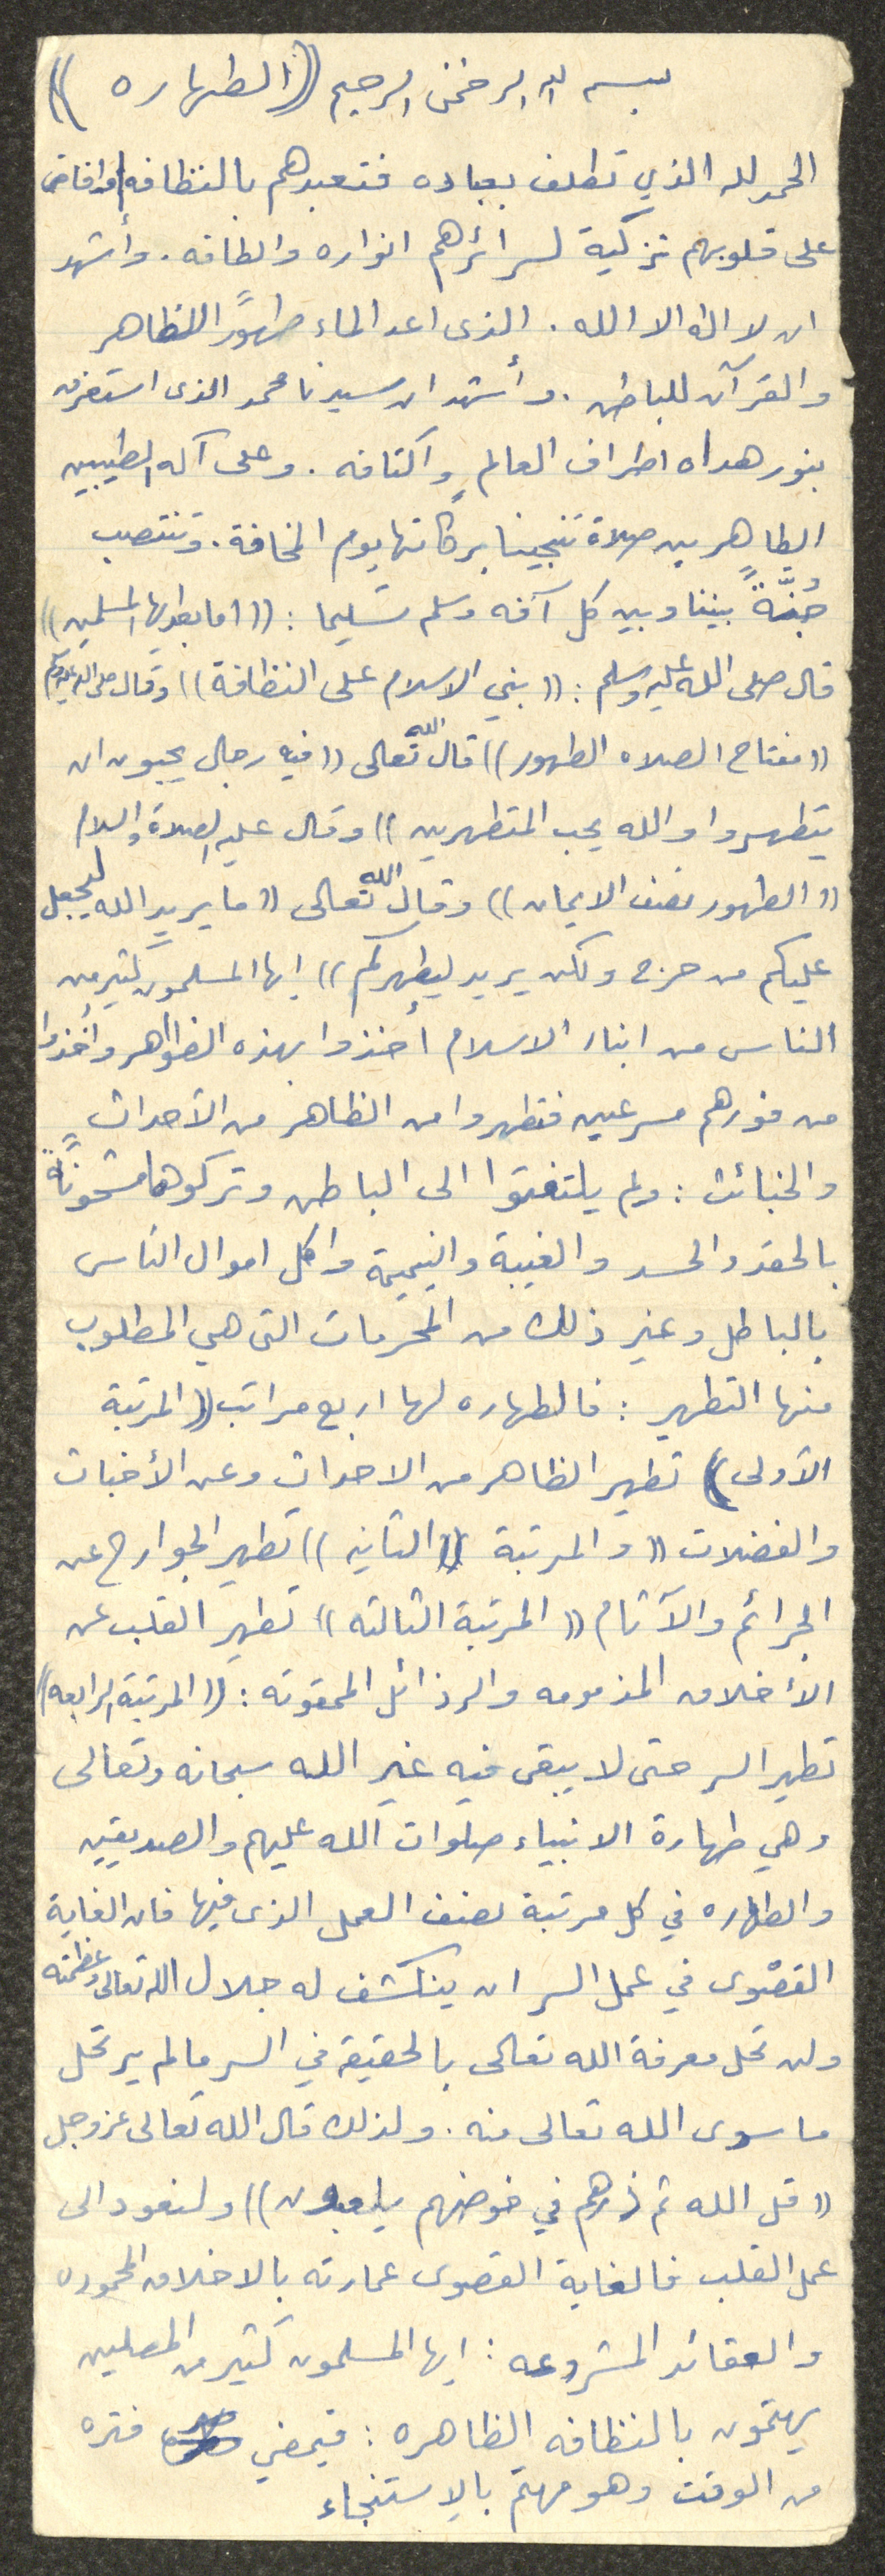 بسم الله الرحمن الرحيم ((الطهاره))
الحمد لله الذي تطلف بعباده فتعبدهم بالنظافه وافاض
على قلوبهم تزكية لسرائرهم انواره والطافه. وأشهد
ان لا اله الا الله. الذى اعد الماء طهورًا للظاهر
والقرآن للباطن. وأشهد ان سيدنا محمد الذى استغرق
بنور هداه اطراف العالم واكنافه. وعلى آله الطيبين
الطاهرين صلاة تنجينا بركاتها يوم المخافة. وتنتصب
جُنَّةً بيننا وبين كل آفه وسلم تسليما: ((اما بعد ايها المسلمين))
قال صلى الله عليه وسلم: ((بني الاسلام على النظافة)) وقال صلى الله عليه وسلم
((مفتاح الصلاه الطهور)) قال الله تعالى ((فيه رجال يحبون ان
يتطهروا والله يحب المتطهرين)) وقال عليه الصلاة والسلام
((الطهور نصف الايمان)) وقال الله تعالى ((ما يريد الله ليجعل
عليكم من حرج ولكن يريد ليطهركم)) ايها المسلمون كثير من
الناس من ابناء الاسلام أخذوا بهذه الظواهر وأخذوا
من فورهم مسرعين فتطهروا من الظاهر من الأحداث
والخبائث: ولم يلتفتوا الى الباطن وتركوها مشحونةً
بالحقد والحسد والغيبة والنميمة واكل اموال الناس
بالباطل وغير ذلك من المحرمات التى هي المطلوب
منها التطهير: فالطهاره لها اربع مراتب ((المرتبة
الأولى)) تطهير الظاهر من الاحداث وعن الأخباث
والفضلات ((والمرتبة الثانيه)) تطهير الجوارح عن
الجرائم والآثام ((المرتبة الثالثه)) تطهير القلب عن
الأخلاق المذمومه والرذائل الممقوته: ((المرتبة الرابعه))
تطهير السر حتى لا يبقى فيه غير الله سبحانه وتعالى
وهي طهارة الانبياء صلوات الله عليهم والصديقين
والطهاره في كل مرتبة نصف العمل الذى فيها فان الغاية
القصْوى في عمل السر ان ينكشف له جلال الله تعالى وعظمته
ولن تحل معرفة الله تعالى بالحقيقة في السر مالم يرتحل
ما سوى الله تعالى منه. ولذلك قال الله تعالى عز وجل
((قل الله ثم ذرهم في خوضهم يلعبون)) ولنعود الى
عمل القلب فالغاية القصوى عمارته بالاخلاق المحموده
والعقائد المشروعه: ايها المسلمون كثير من المصلين
يهتمون بالنظافه الظاهره: فيمضي فتره
من الوقت وهو مهتم بالإستنجاء